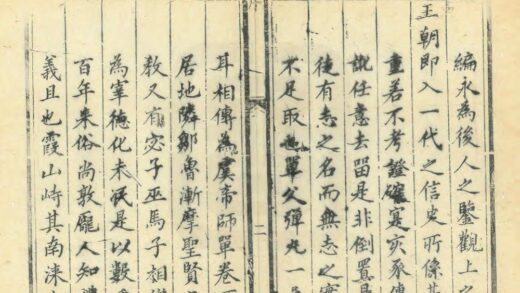 編永為後人之鑒觀上
王朝即入一代之信史所係其
重若不考證確寔亥豕傳
訛任意去留是非倒置是
徒有志之名而無志之實
不足取也單父彈丸一
二
耳相傳為虞帝師單卷
居地隣鄒魯漸摩聖賢
教又有宓子巫馬子相繼
為宰德化未泯是以數
百年来俗尚敦龐人知禮
義且也霞山峙其南涞